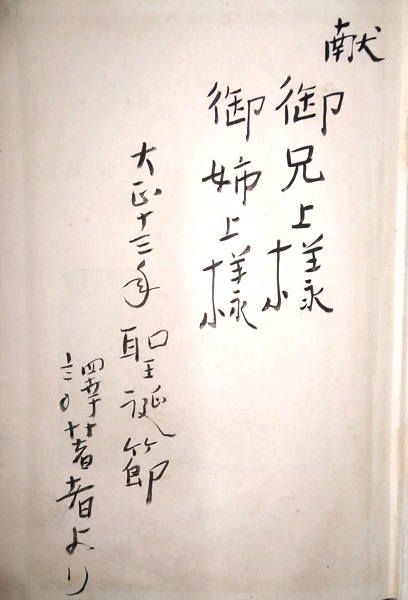 献
御兄上様
御姉上様
大正十三年 聖誕節
譯著者より